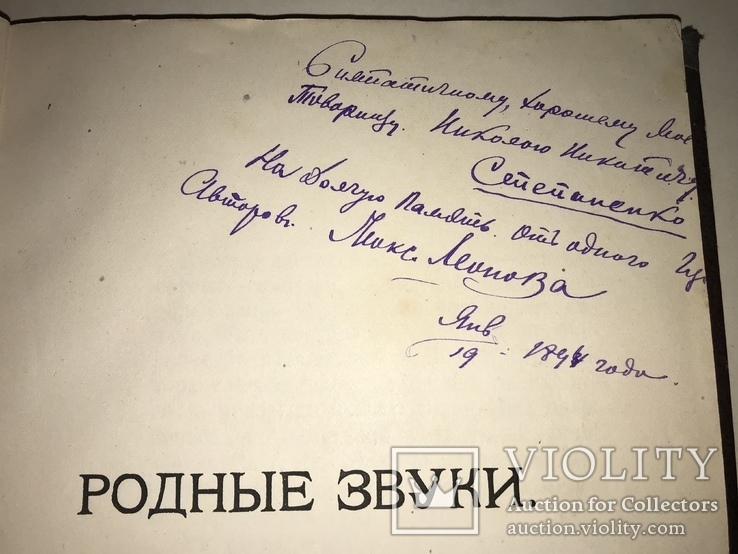 Симпатичному, хорошему мое
товарищу. Николаю Никитичу
Степаненко
На долгую память. отъ одного
Авторовъ. Макс. Леонова
Янв
19 - 1891 года.
РОДНЫЕ ЗВУКИ.
VIOLITY
Auction for Collectors
auction.violity.com